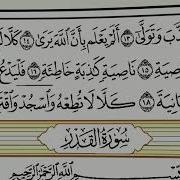 ذَّبَ وَتَوَلَّىٰ ١٣ أَلَمْ يَعْلَم بِأَنَّ ٱللَّهَ يَرَىٰ ١٤ كَلَّا لَ
صِيَةِ ١٥ نَاصِيَةٍ كَٰذِبَةٍ خَاطِئَةٍ ١٦ فَلْيَدْعُ
بَانِيَةَ ١٨ كَلَّا لَا تُطِعْهُ وَٱسْجُدْ وَٱقْتَ
سُورَةُ ٱلْقَدْرِ
بِسْمِ ٱللَّهِ ٱلرَّحْمَٰنِ ٱلرَّحِيمِ